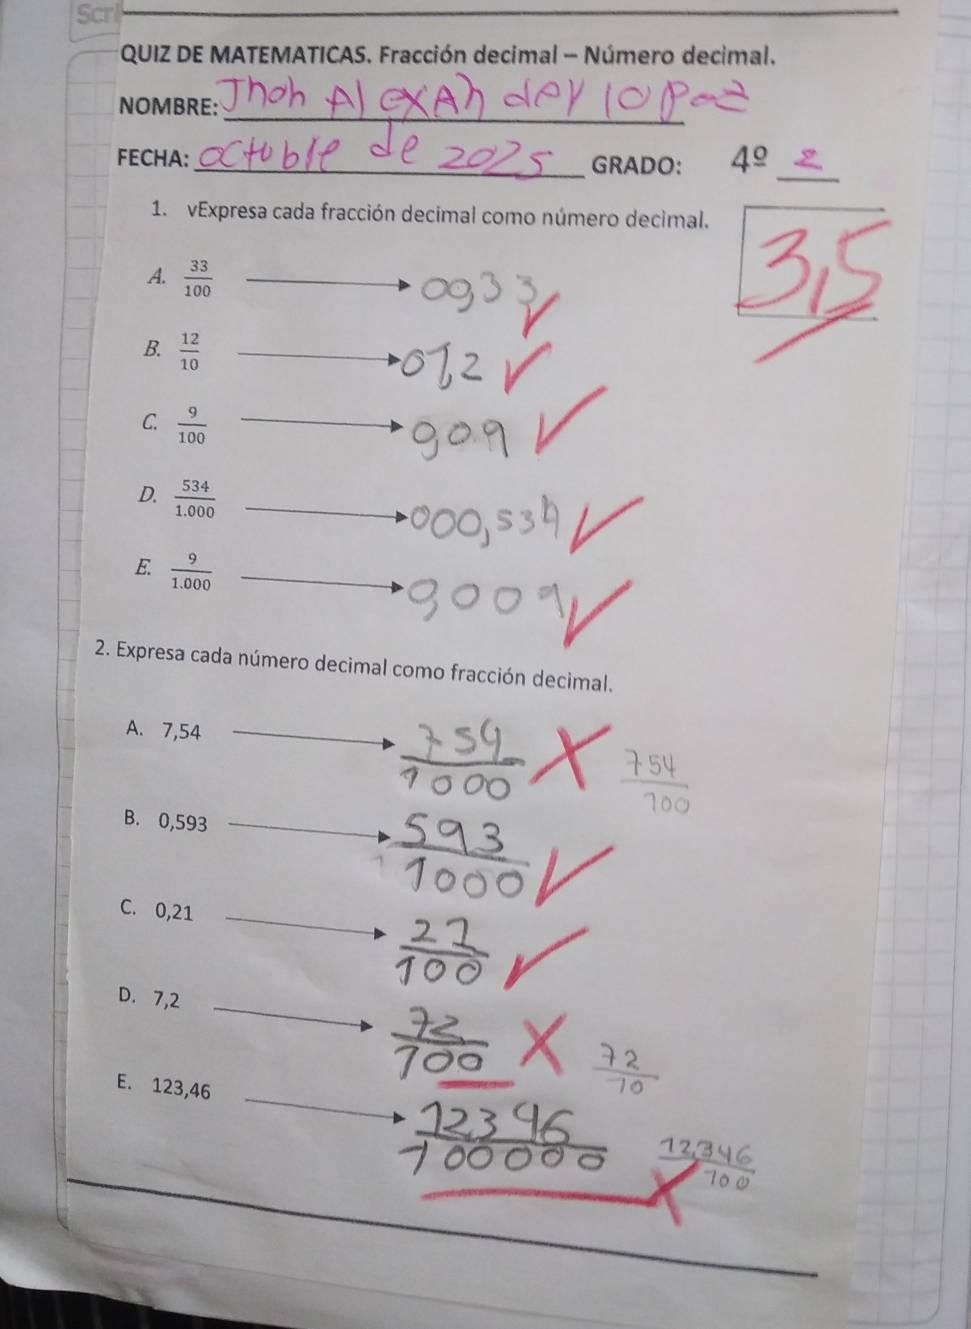 Scri
QUIZ DE MATEMATICAS. Fracción decimal – Número decimal.
NOMBRE: Jhoh AlexAhder lopaz
FECHA: octuble de 2025 GRADO: 4º 2
1. vExpresa cada fracción decimal como número decimal.
3,5
A. 33/100 00,33
B. 12/10 01,2
C. 9/100 0,09
D. 534/1.000 000,534
E. 9/1.000 0,009
2. Expresa cada número decimal como fracción decimal.
A. 7,54 754/1000 754/100
B. 0,593 593/1000
C. 0,21 21/100
D. 7,2 72/100 72/10
E. 123,46 12346/100000 12346/100